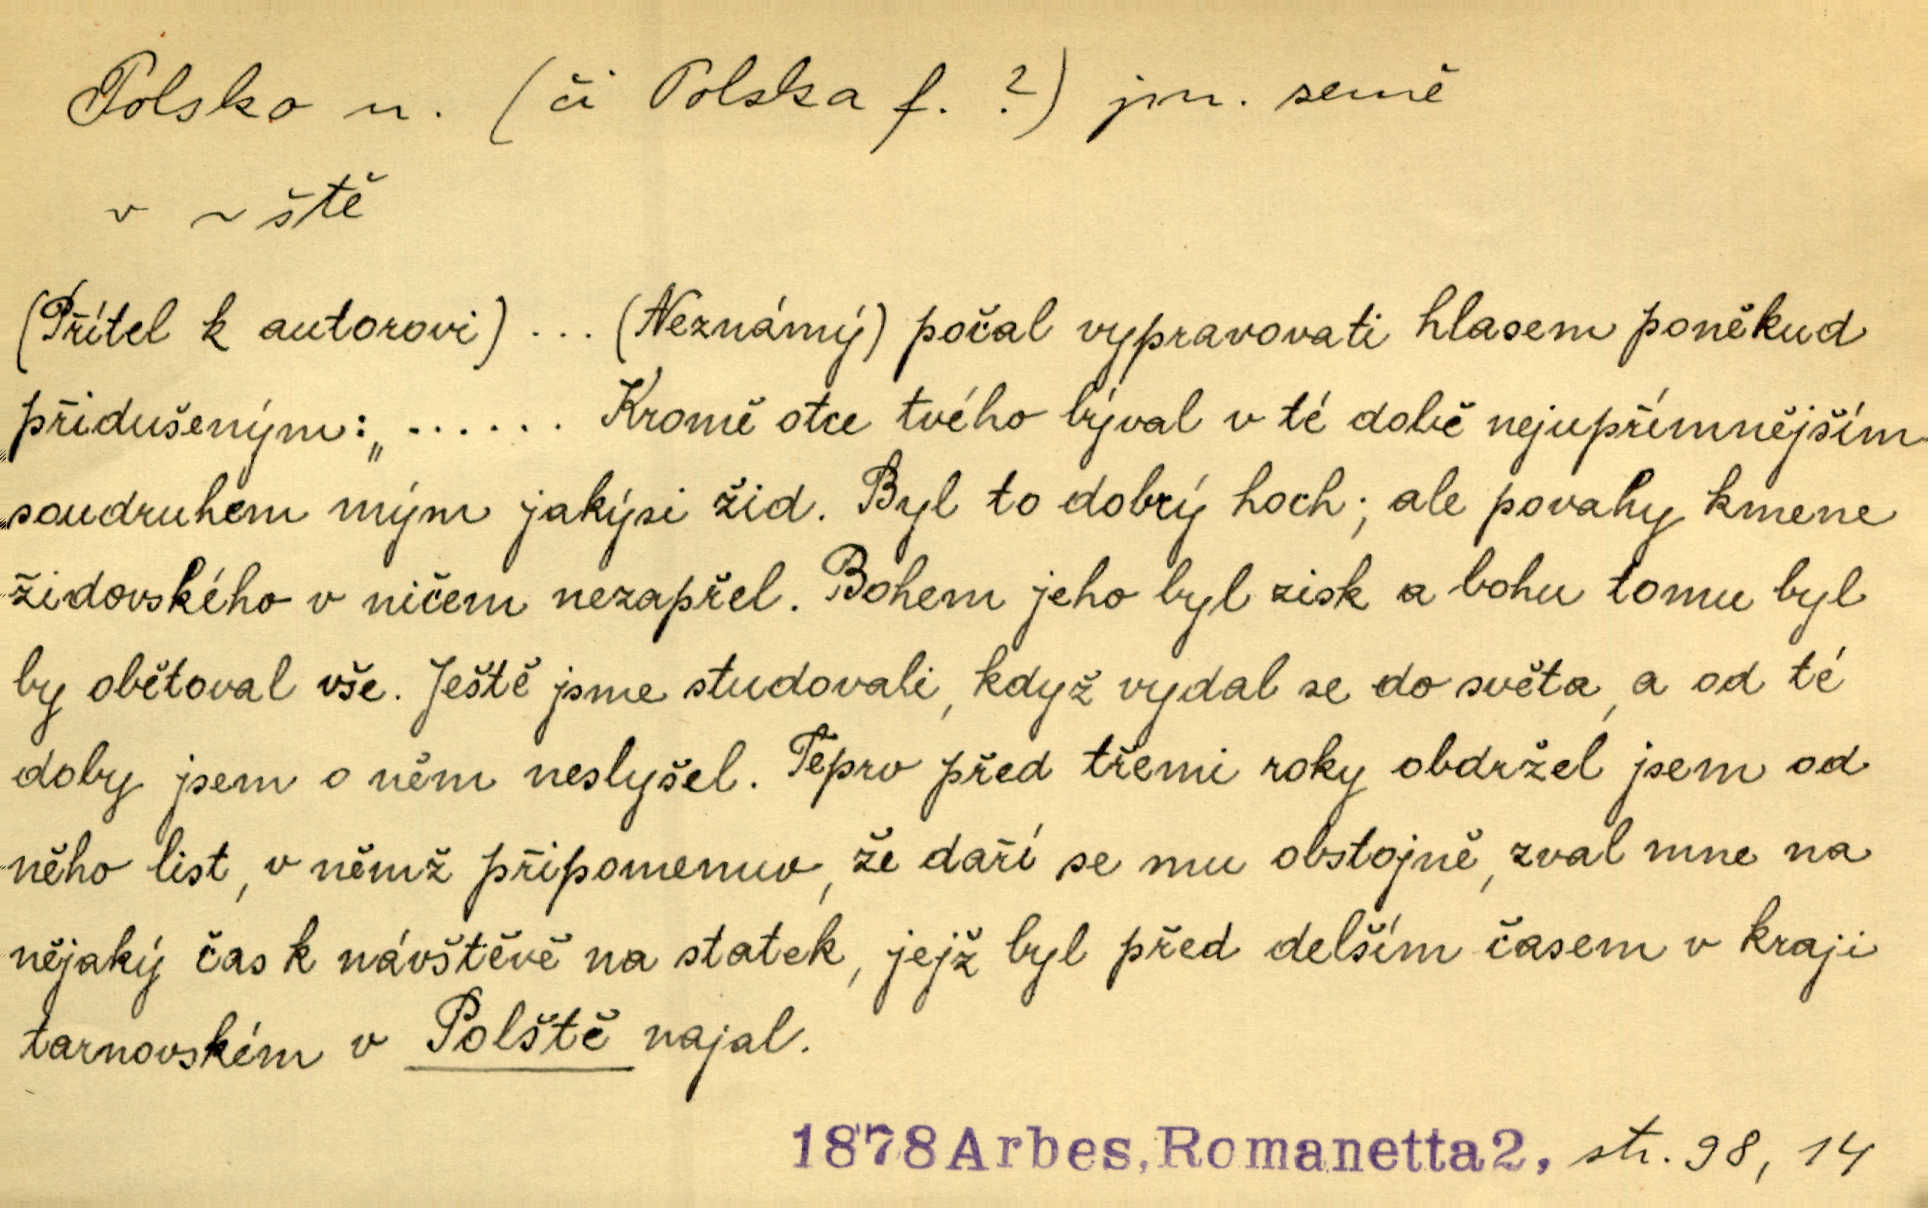 Polsko n. (či Polska f. ?) jm. země
v ~ ště
(Přítel k autorovi) ... (Neznámý) počal vypravovati hlasem poněkud
přidušeným: „ ...... Kromě otce tvého býval v té době nejupřímnějším
soudruhem mým jakýsi žid. Byl to dobrý hoch; ale povahy kmene
židovského v ničem nezapřel. Bohem jeho byl zisk a bohu tomu byl
by obětoval vše. Ještě jsme studovali, když vydal se do světa, a od té
doby jsem o něm neslyšel. Teprv před třemi roky obdržel jsem od
něho list, v němž připomenuv, že daří se mu obstojně, zval mne na
nějaký čas k návštěvě na statek, jejž byl před delším časem v kraji
tarnovském v Polště najal.
1878 Arbes, Romanetta 2, str. 98, 14